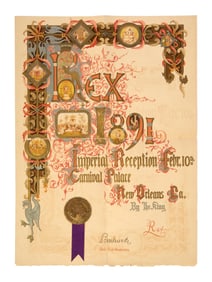 Rex
1891
Imperial Reception Febr. 10th
Carnival Palace
New Orleans La.
By The King
Rex